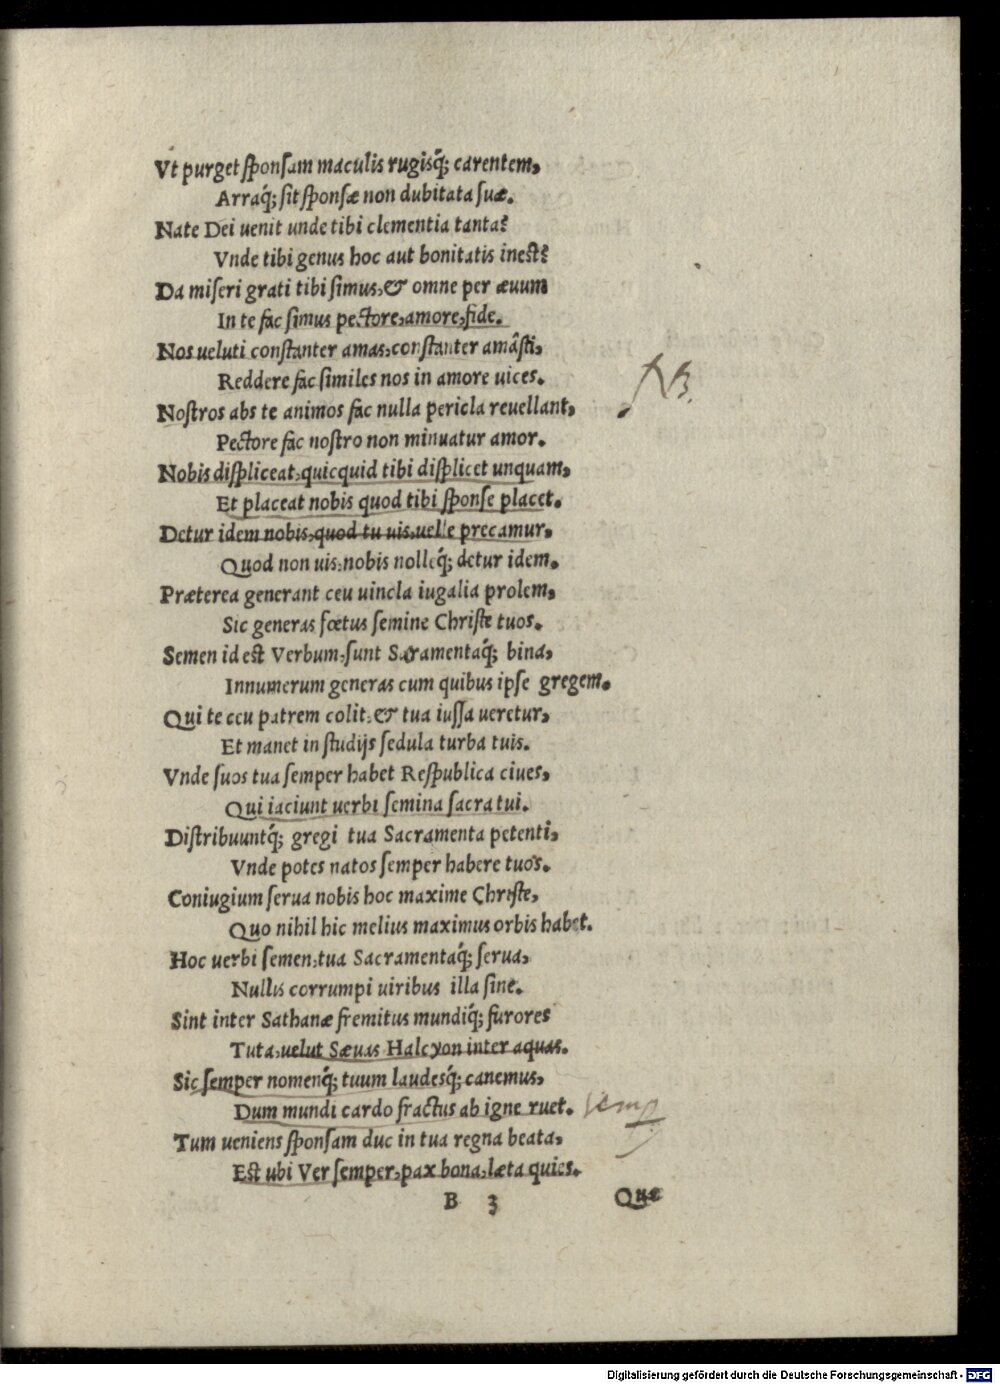 Vt purget ſponſam maculis rugisq́; carentem,
Arraq́; ſit ſponſæ non dubitata ſuæ.
Nate Dei uenit unde tibi clementia tanta?
Vnde tibi genus hoc aut bonitatis ineſt?
Da miſeri grati tibi ſimus, & omne per æuum
In te fac ſimus pectore, amore, fide.
Nos ueluti conſtanter amas, conſtanter amâſti,
Reddere fac ſimiles nos in amore uices.
Noſtros abs te animos fac nulla pericla reuellant,
Pectore fac noſtro non minuatur amor.
Nobis diſpliceat, quicquid tibi diſplicet unquam,
Et placeat nobis quod tibi ſponſe placet.
Detur idem nobis, quod tu uis, uelle precamur,
Quod non uis, nobis nolleq́; detur idem.
Præterea generant ceu uincla iugalia prolem,
Sic generas fœtus ſemine Chriſte tuos.
Semen id eſt Verbum, ſunt Sacramentaq́; bina,
Innumerum generas cum quibus ipſe gregem.
Qui te ceu patrem colit, & tua iuſſa ueretur,
Et manet in ſtudijs ſedula turba tuis.
Vnde ſuos tua ſemper habet Reſpublica ciues,
Qui iaciunt uerbi ſemina ſacra tui.
Diſtribuuntq́; gregi tua Sacramenta petenti,
Vnde potes natos ſemper habere tuos.
Coniugium ſerua nobis hoc maxime Chriſte,
Quo nihil hic melius maximus orbis habet.
Hoc uerbi ſemen, tua Sacramentaq́; ſerua,
Nullis corrumpi uiribus illa ſine.
Sint inter Sathanæ fremitus mundiq́; furores
Tuta, uelut Sæuas Halcyon inter aquas.
Sic ſemper nomenq́; tuum laudesq́; canemus,
Dum mundi cardo fractus ab igne ruet.
Tum ueniens ſponſam duc in tua regna beata,
Eſt ubi Ver ſemper, pax bona, læta quies.
B 3 Quæ
NB.
Digitalisierung gefördert durch die Deutsche Forschungsgemeinschaft - DFG